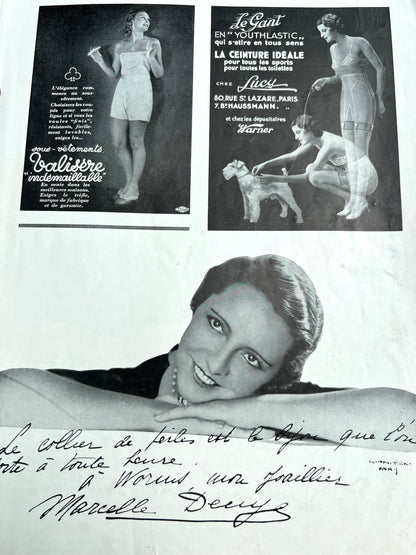 L'élégance com-
mence au sous-
vêtement.
Choisissez les cou-
pés pour votre
ligne et si vous les
voulez "finis",
résistants, facile-
ment lavables,
exigez les...
sous-vêtements
Valisère
"indémaillable"
En vente dans les
meilleures maisons.
Exigez le trèfle,
marque de fabrique
et de garantie.
Le Gant
EN "YOUTHLASTIC"
qui s'étire en tous sens
LA CEINTURE IDÉALE
pour tous les sports
pour toutes les toilettes
CHEZ Lucy
80, RUE ST LAZARE, PARIS
7, BD HAUSSMANN
et chez les dépositaires
Warner
Le collier de perles est le bijou que l'on
porte à toute heure.
à Worms, mon Joaillier
Marcelle Denya
PARIS